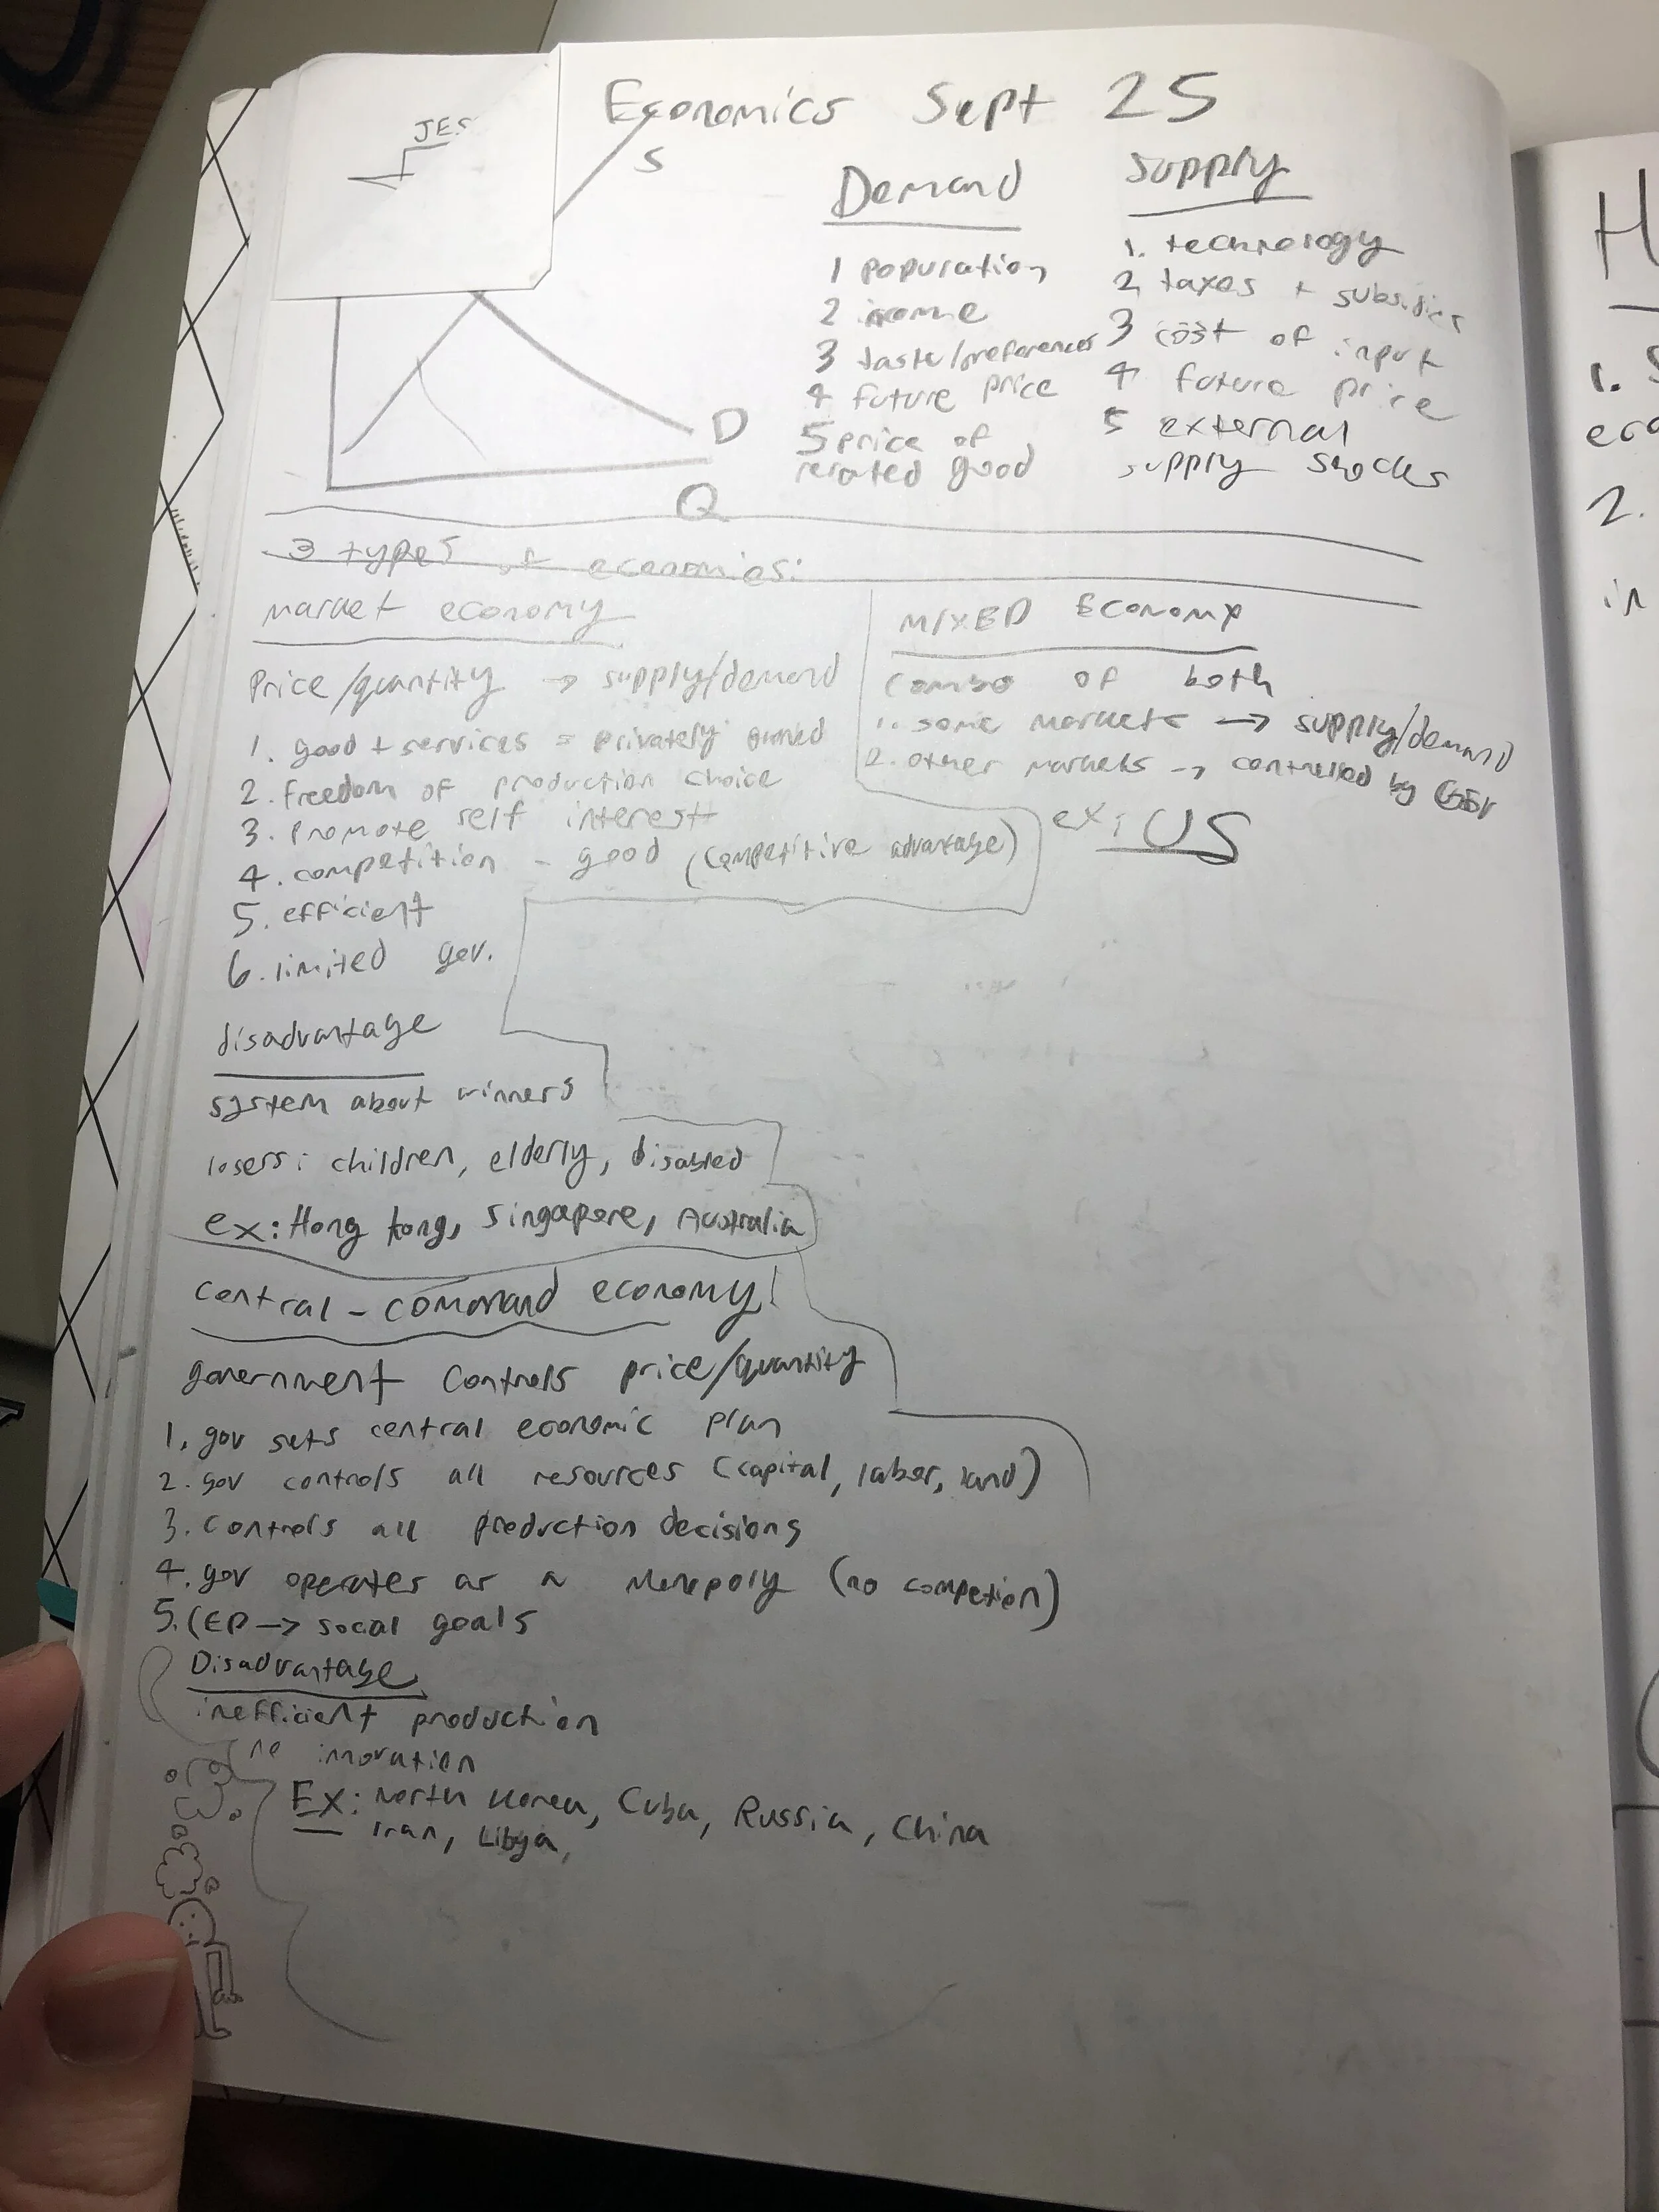 Economics Sept 25
JES
S
D
Q
Demand
1 population
2 income
3 taste/preferences
4 future price
5 price of
related good
Supply
1. technology
2 taxes + subsidies
3 cost of input
4 future price
5 external
supply shocks
3 types of economies:
market economy
Price/quantity → supply/demand
1. good + services = privately owned
2. freedom of production choice
3. promote self interest
4. competition - good (competitive advantage)
5. efficient
6. limited gov.
disadvantage
system about winners
losers: children, elderly, disabled
ex: Hong kong, Singapore, Australia
MIXED ECONOMY
combo of both
1. some markets → supply/demand
2. other markets → controlled by Gov
ex: US
central-command economy
government controls price/quantity
1. gov sets central economic plan
2. gov controls all resources (capital, labor, land)
3. controls all production decisions
4. gov operates as a Monopoly (no competion)
5. CEP → socal goals
Disadvantage
inefficient production
no innovation
Ex: North Korea, Cuba, Russia, China
Iran, Libya,
H
1. S
2.
in